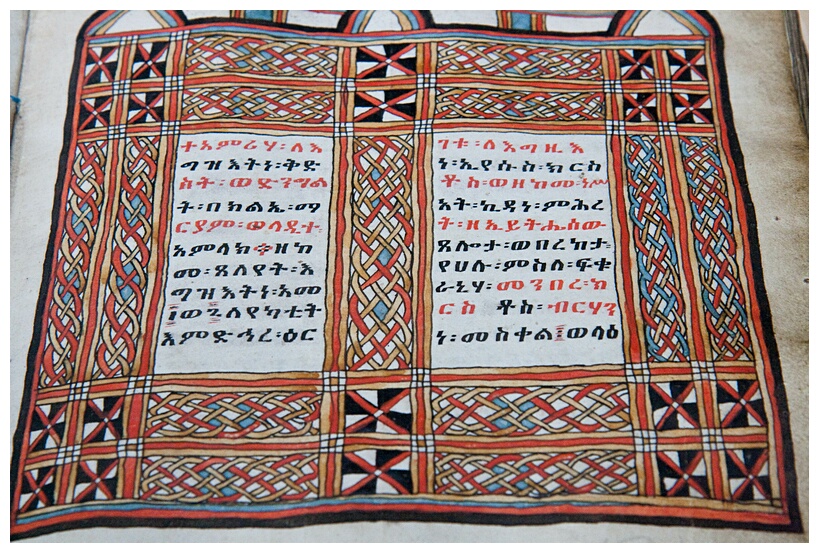 ተአምሪሃ፡ለእ
ግዝእትነ፡ቅድ
ስት፡ወድንግል
ት፡በክልኤ፡ማ
ርያም፡ወላዲተ
አምላክ፡ዘከ
መ፡ጸለየት፡እ
ግዝእትነ፡አመ
፲ወ፮ለየካቲት
እምድኅረ፡ዕር
ገቱ፡ለእግዚእ
ነ፡ኢየሱስ፡ክርስ
ቶስ፡ወዘከመ፡ነሥ
አት፡ኪዳነ፡ምሕረ
ት፡ዘኢይትሔሰው
ጸሎታ፡ወበረከታ
የሀሉ፡ምስለ፡ፍቁ
ራኒሃ፡መንበረ፡ክ
ርስ ቶስ፡ብርሃን
ነ፡መስቀል፤ወላዕ